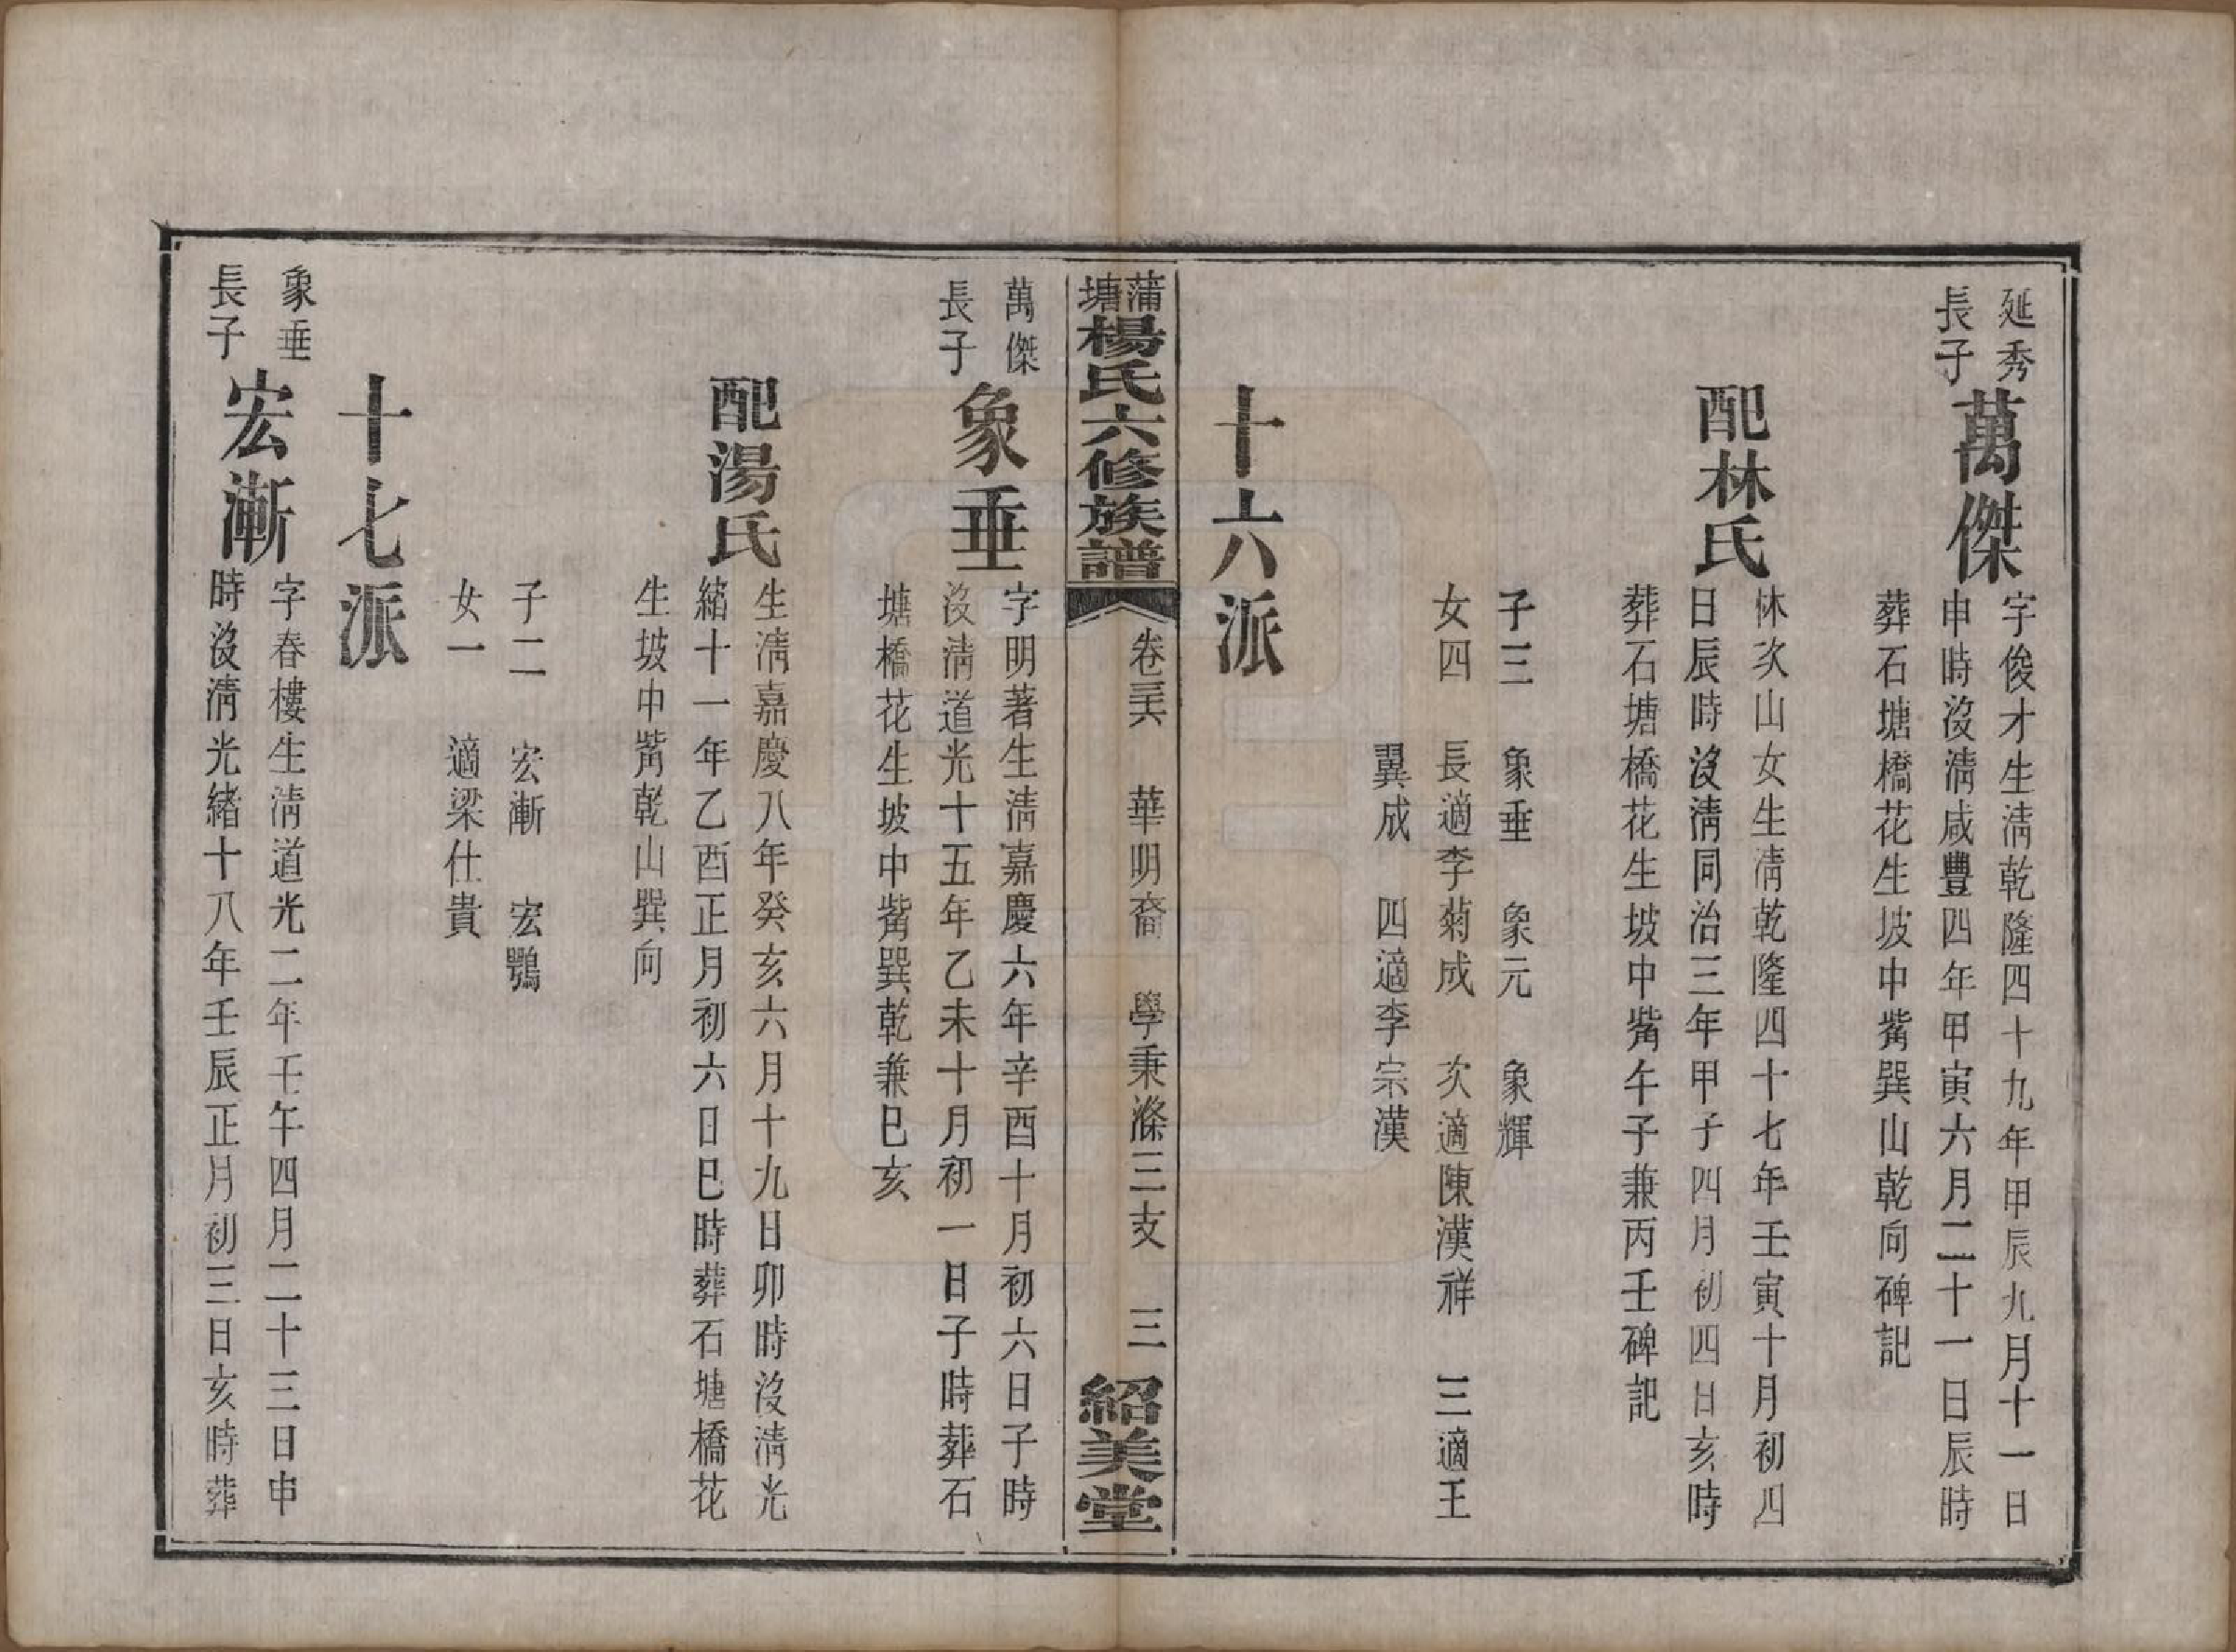 延秀
長子
萬傑
字俊才生淸乾隆四十九年甲辰九月十一日
申時沒淸咸豐四年甲寅六月二十一日辰時
葬石塘橋花生坡中觜巽山乾向碑記
配林氏
林次山女生淸乾隆四十七年壬寅十月初四
日辰時沒淸同治三年甲子四月初四日亥時
葬石塘橋花生坡中觜午子兼丙壬碑記
子三 象垂 象元 象輝
女四 長適李菊成 次適陳漢祥 三適王
翼成 四適李宗漢
十六派
蒲塘楊氏六修族譜 卷三六 華明裔 學秉滌三支 三 紹美堂
萬傑
長子
象垂
字明著生淸嘉慶六年辛酉十月初六日子時
沒淸道光十五年乙未十月初一日子時葬石
塘橋花生坡中觜巽乾兼巳亥
配湯氏
生淸嘉慶八年癸亥六月十九日卯時沒淸光
緒十一年乙酉正月初六日巳時葬石塘橋花
生坡中觜乾山巽向
子二 宏漸 宏鶚
女一 適梁仕貴
十七派
象垂
長子
宏漸
字春樓生淸道光二年壬午四月二十三日申
時沒淸光緒十八年壬辰正月初三日亥時葬